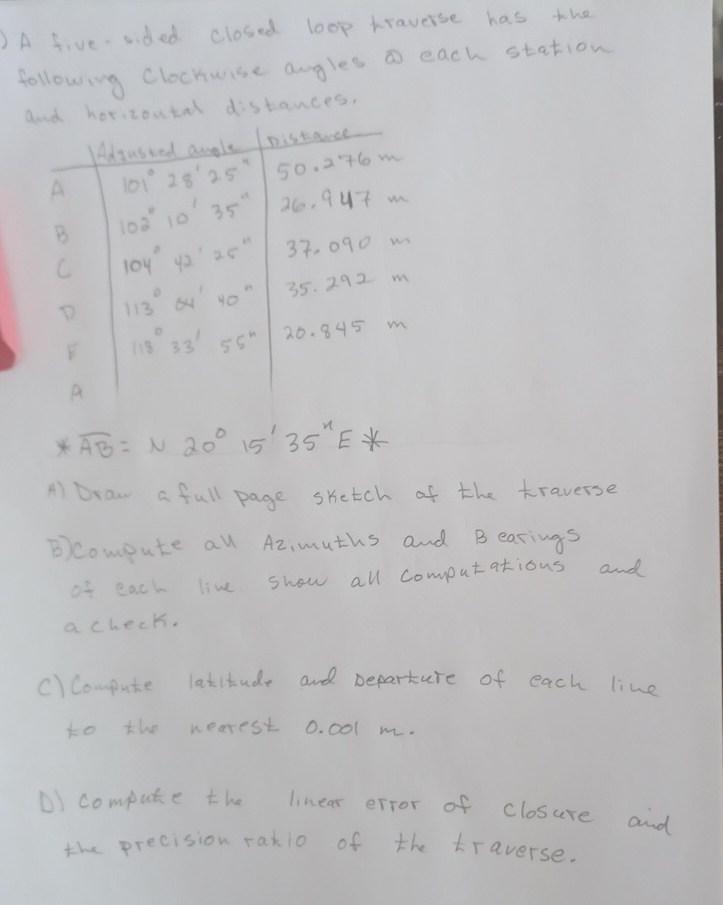 ) A five-sided closed loop traverse has the
following Clockwise angles @ each station
and horizontal distances.
Adjusted angle Distance
A 101° 28' 25" 50.276 m
B 102° 10' 35" 26.947 m
C 104° 42' 25" 37.090 m
D 113° 04' 40" 35.292 m
E 118° 33' 55" 20.845 m
A
* AB = N 20° 15' 35" E *
A) Draw a full page sketch of the traverse
B) Compute all Azimuths and Bearings
of each line show all computations and
a check.
C) Compute latitude and Departure of each line
to the nearest 0.001 m.
D) compute the linear error of closure and
the precision ratio of the traverse.